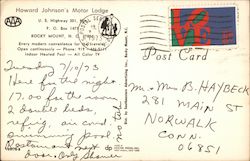 Howard Johnson's Motor Lodge
U. S. Highway 301, 
P. O. Box 1471
ROCKY MOUNT, N. C.
Every modern convenience for the traveler
Open continuously — Phone:
Indoor Heated Pool — All
Sunday 7/10/73
Here for the night
17.00 for the room
2 double beds,
refrig. air cond.
swimming pool
Restaurant next
door. Only shower
no tub
Post Card
Mr & Mrs B. HAYBECK
281 MAIN ST
NORWALK
CONN.
06851